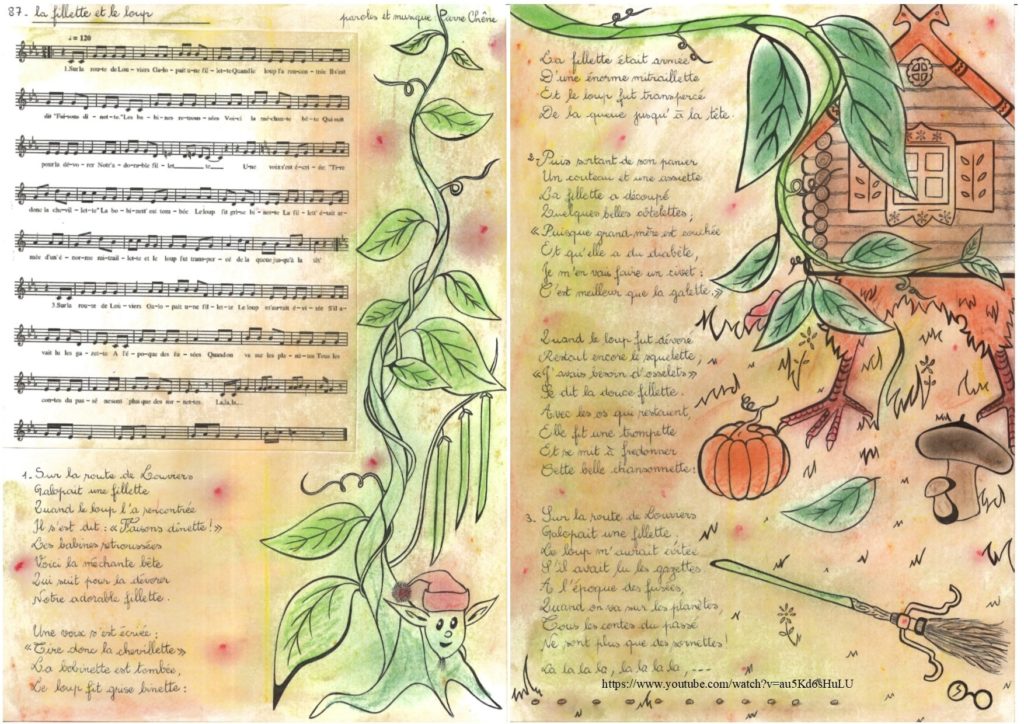 87. la fillette et le loup
paroles et musique : Pierre Chêne
♩ = 120
1.Sur la rou-te de Lou-viers Ga-lo-pait u-ne fil-let-te Quand le loup l'a ren-con-trée Il s'est
dit "Fai-sons dî-nette." Les ba-bines re-trous-sées Voi-ci la mé-chan-te bê-te Qui suit
pour la dé-vo-rer Notr'a-do-ra-ble fil-let____te____ U-ne voix s'est é-cri-ée "Ti-re
donc la che-vil-lette" La bo-bi-nett' est tom-bée Le loup fit gri-se bi-nette La fil-lett' é-tait ar-
mée d'un'é-nor-me mi-trail-lette et le loup fut trans-per-cé de la queue jusqu'à la têt'
3.Sur la rou-te de Lou-viers Ga-lo-pait u-ne fil-let-te Le loup m'aurait é-vi-tée S'il a-
vait lu les ga-zet-te A l'é-po-que des fu-sées Quand on va sur les pla-nètes Tous les
contes du pas-sé ne sont plus que des sor-nettes. La.la.la...
1. Sur la route de Louviers
Galopait une fillette
Quand le loup l'a rencontrée
Il s'est dit : « Faisons dînette ! »
Les babines retroussées
Voici la méchante bête
Qui suit pour la dévorer
Notre adorable fillette.
Une voix s'est écriée :
« Tire donc la chevillette »
La bobinette est tombée,
Le loup fit grise binette :
La fillette était armée
D'une énorme mitraillette
Et le loup fut transpercé
De la queue jusqu'à la tête.
2. Puis sortant de son panier
Un couteau et une assiette
La fillette a découpé
Quelques belles côtelettes ;
« Puisque grand-mère est couchée
Et qu'elle a du diabète,
Je m'en vais faire un civet :
C'est meilleur que la galette. »
Quand le loup fut dévoré
Restait encore le squelette,
« J'avais besoin d'osselets »
Se dit la douce fillette.
Avec les os qui restaient,
Elle fit une trompette
Et se mit à fredonner
Cette belle chansonnette :
3. Sur la route de Louviers
Galopait une fillette.
Le loup m'aurait évitée
S'il avait lu les gazettes.
A l'époque des fusées,
Quand on va sur les planètes,
Tous les contes du passé
Ne sont plus que des sornettes !
La la la la, la la la la, ---
https://www.youtube.com/watch?v=au5Kd6sHuLU